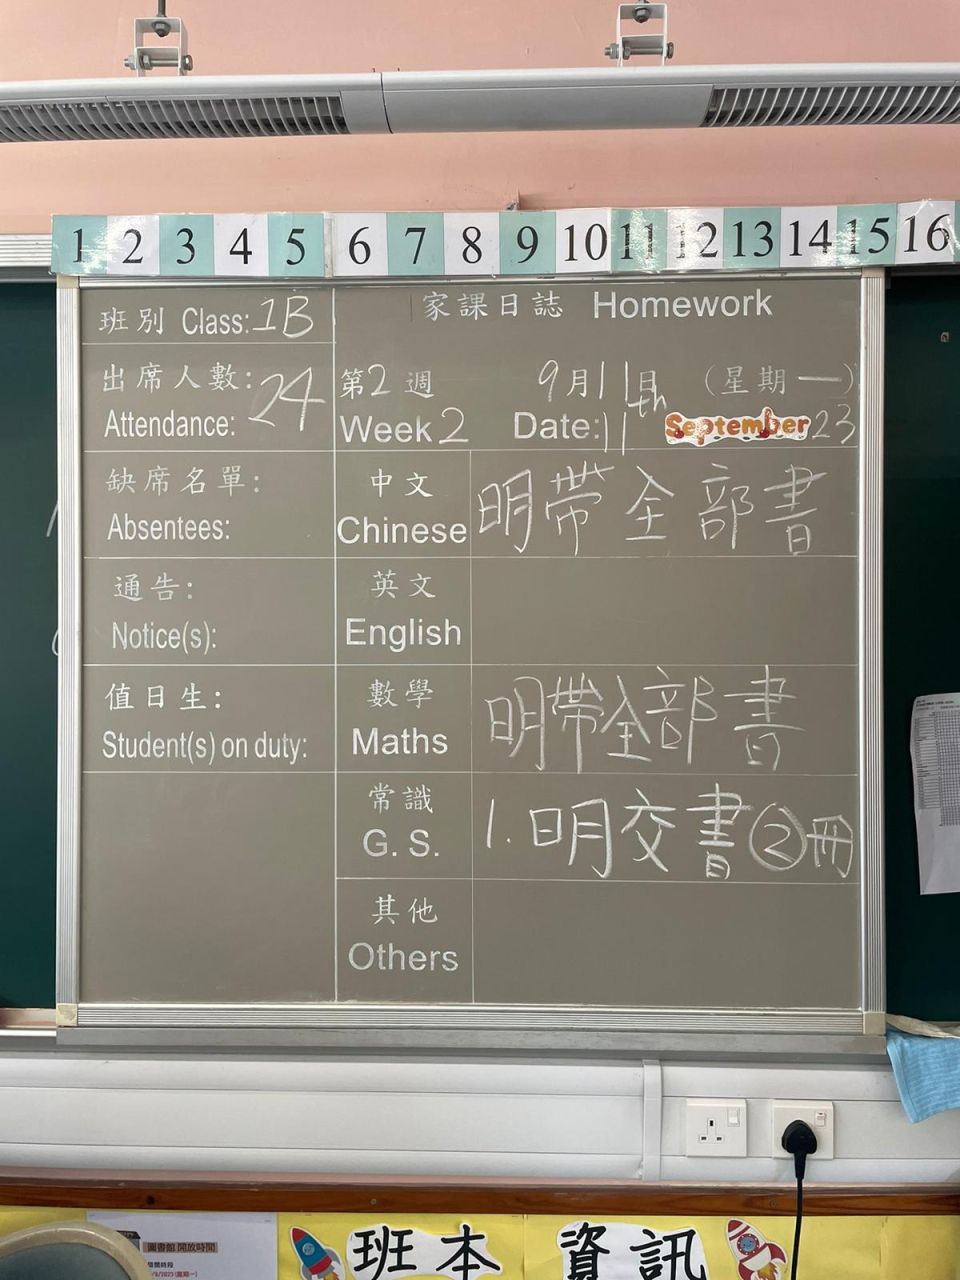 1 2 3 4 5 6 7 8 9 10 11 12 13 14 15 16
班別 Class: 1B
家課日誌 Homework
出席人數:
Attendance: 24
第2週 9月11日 (星期一)
Week 2 Date: 11th September 23
缺席名單:
Absentees:
中文
Chinese
明帶全部書
通告:
Notice(s):
英文
English
值日生:
Student(s) on duty:
數學
Maths
明帶全部書
常識
G. S.
1. 明交書②冊
其他
Others
圖書館 開放時間
班本 資訊